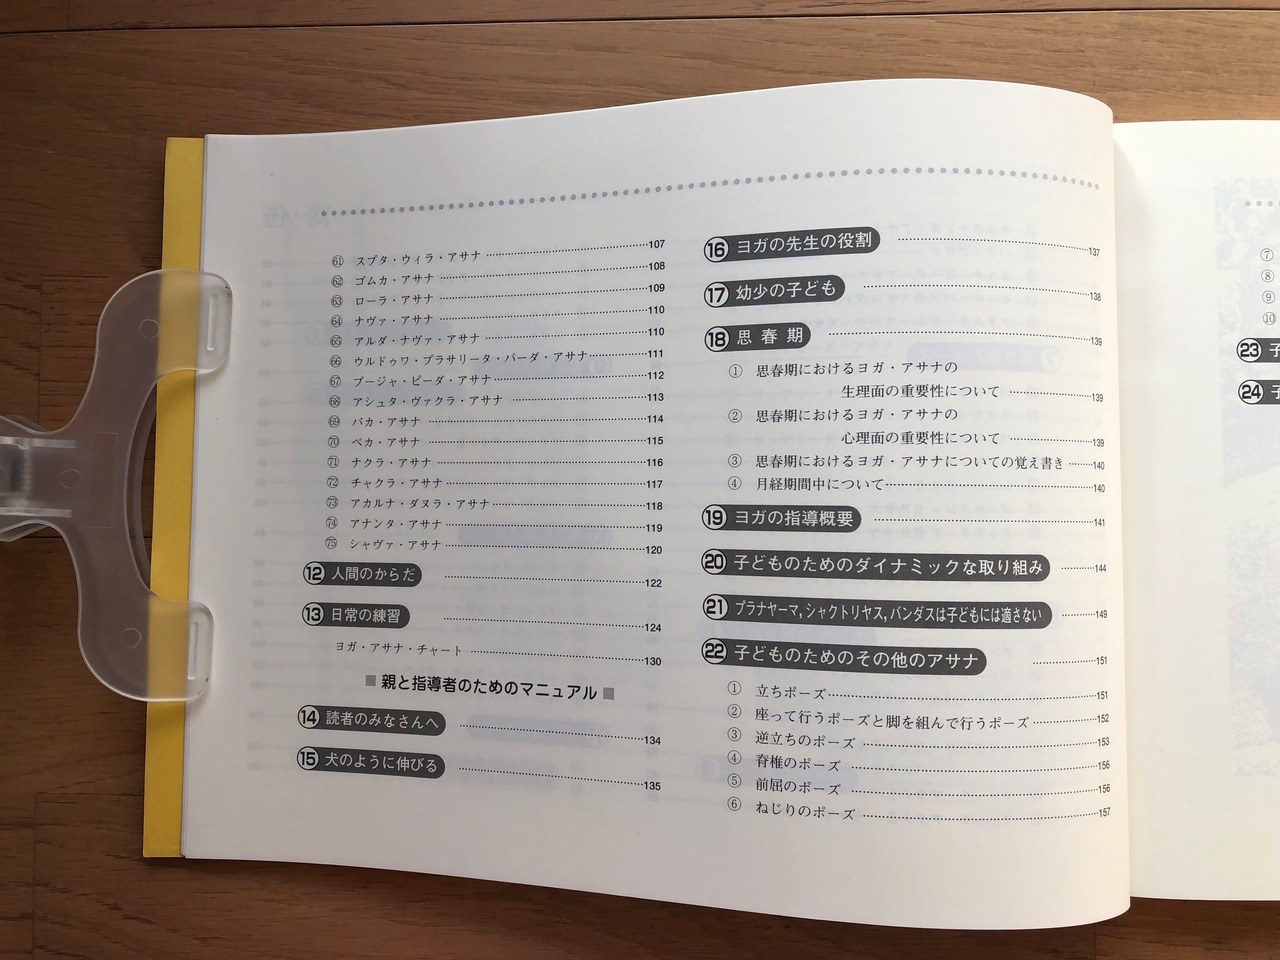 ㉖¹ スプタ・ウィラ・アサナ 107
㉖² ゴムカ・アサナ 108
㉖³ ローラ・アサナ 109
㉖⁴ ナヴァ・アサナ 110
㉖⁵ アルダ・ナヴァ・アサナ 110
66 ウルドゥワ・プラサリータ・パーダ・アサナ 111
67 ブージャ・ピーダ・アサナ 112
68 アシュタ・ヴァクラ・アサナ 113
69 バカ・アサナ 114
70 ベカ・アサナ 115
71 ナクラ・アサナ 116
72 チャクラ・アサナ 117
73 アカルナ・ダヌラ・アサナ 118
74 アナンタ・アサナ 119
75 シャヴァ・アサナ 120
⑫ 人間のからだ 122
⑬ 日常の練習 124
ヨガ・アサナ・チャート 130
■ 親と指導者のためのマニュアル ■
⑭ 読者のみなさんへ 134
⑮ 犬のように伸びる 135
⑯ ヨガの先生の役割 137
⑰ 幼少の子ども 138
⑱ 思春期 139
① 思春期におけるヨガ・アサナの
生理面の重要性について 139
② 思春期におけるヨガ・アサナの
心理面の重要性について 139
③ 思春期におけるヨガ・アサナについての覚え書き 140
④ 月経期間中について 140
⑲ ヨガの指導概要 141
⑳ 子どものためのダイナミックな取り組み 144
㉑ プラナヤーマ,シャクトリヤス,バンダスは子どもには適さない 149
㉒ 子どものためのその他のアサナ 151
① 立ちポーズ 151
② 座って行うポーズと脚を組んで行うポーズ 152
③ 逆立ちのポーズ 153
④ 脊椎のポーズ 156
⑤ 前屈のポーズ 156
⑥ ねじりのポーズ 157
⑦
⑧
⑨
⑩
㉓ 子
㉔ 子